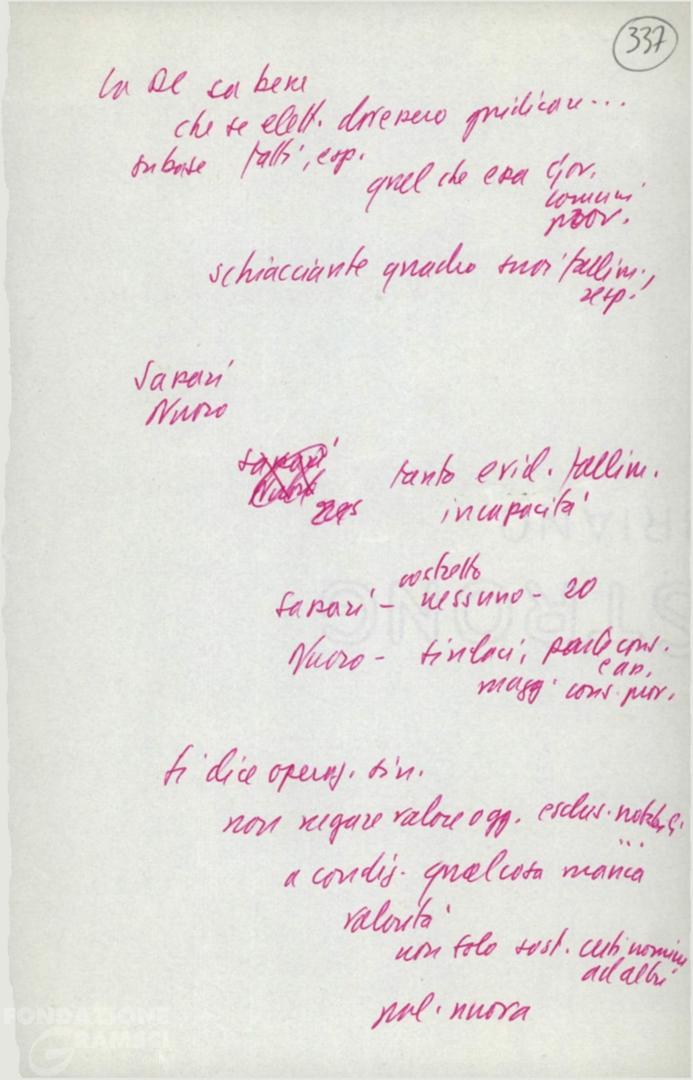 337
La DC sa bene
che se elett. dovessero giudicare...
su base fatti, esp.
quel che essa Gov.
comuni
prov.
schiacciante quadro suoi fallim.,
resp.
Sassari
Nuoro
Sassari
Nuoro
tanto evid. fallim.
incapacità
costretto
Sassari - nessuno - 20
Nuoro - sindaci, parte cons.
magg. cons. prov.
si dice operaz. sin.
non negare valore ogg. esclus. notab.
...
a condiz. qualcosa manca
volontà
non solo sost. certi nomini
ad altri
pol. nuova
FONDAZIONE
GRAMSCI